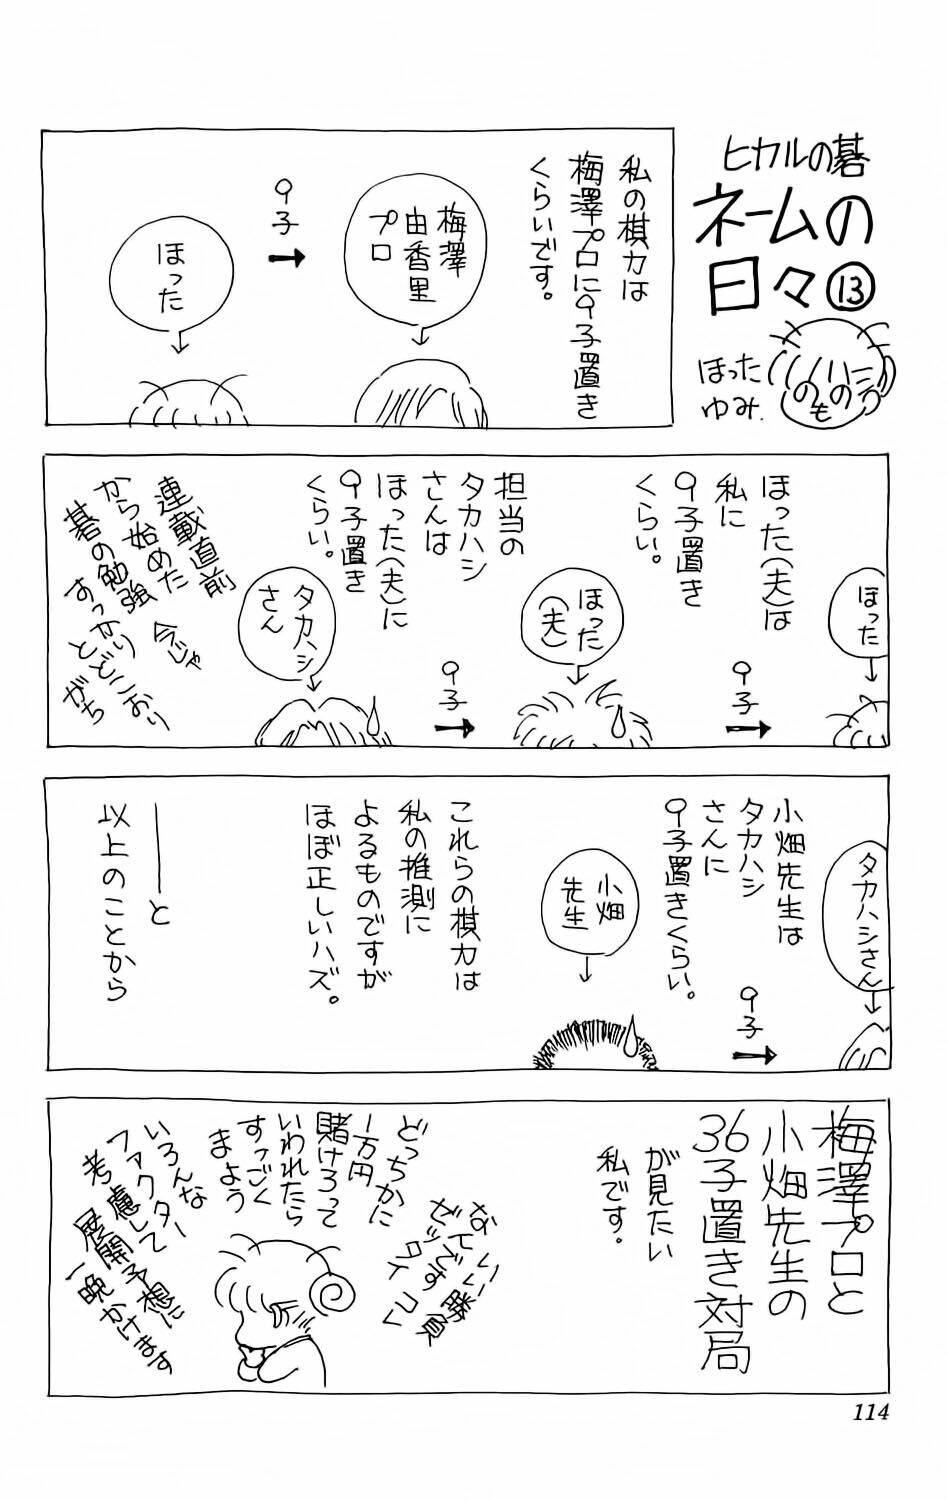 ヒカルの碁
ネームの
日々⑬
ほった
ゆみ.
のものう
私の棋力は
梅澤プロに9子置き
くらいです。
梅澤
由香里
プロ
9子
ほった
ほった(夫)は
私に
9子置き
くらい。
ほった
9子
担当の
タカハシ
さんは
ほった(夫)に
9子置き
くらい。
ほった
(夫)
9子
タカハシ
さん
連載直前
から始めた
碁の勉強
今じゃ
すっかり
とどこおり
がち
小畑先生は
タカハシ
さんに
9子置きくらい。
タカハシさん
9子
小畑
先生
これらの棋力は
私の推測に
よるものですが
ほぼ正しいハズ。
――と
以上のことから
梅澤プロと
小畑先生の
36子置き対局
が見たい
私です。
いい勝負
なんです
ゼッタイコレ
どっちかに
1万円
賭けろって
いわれたら
すっごく
まよう
いろんな
ファクター
考慮して
展開予想に
一晩かけます
114